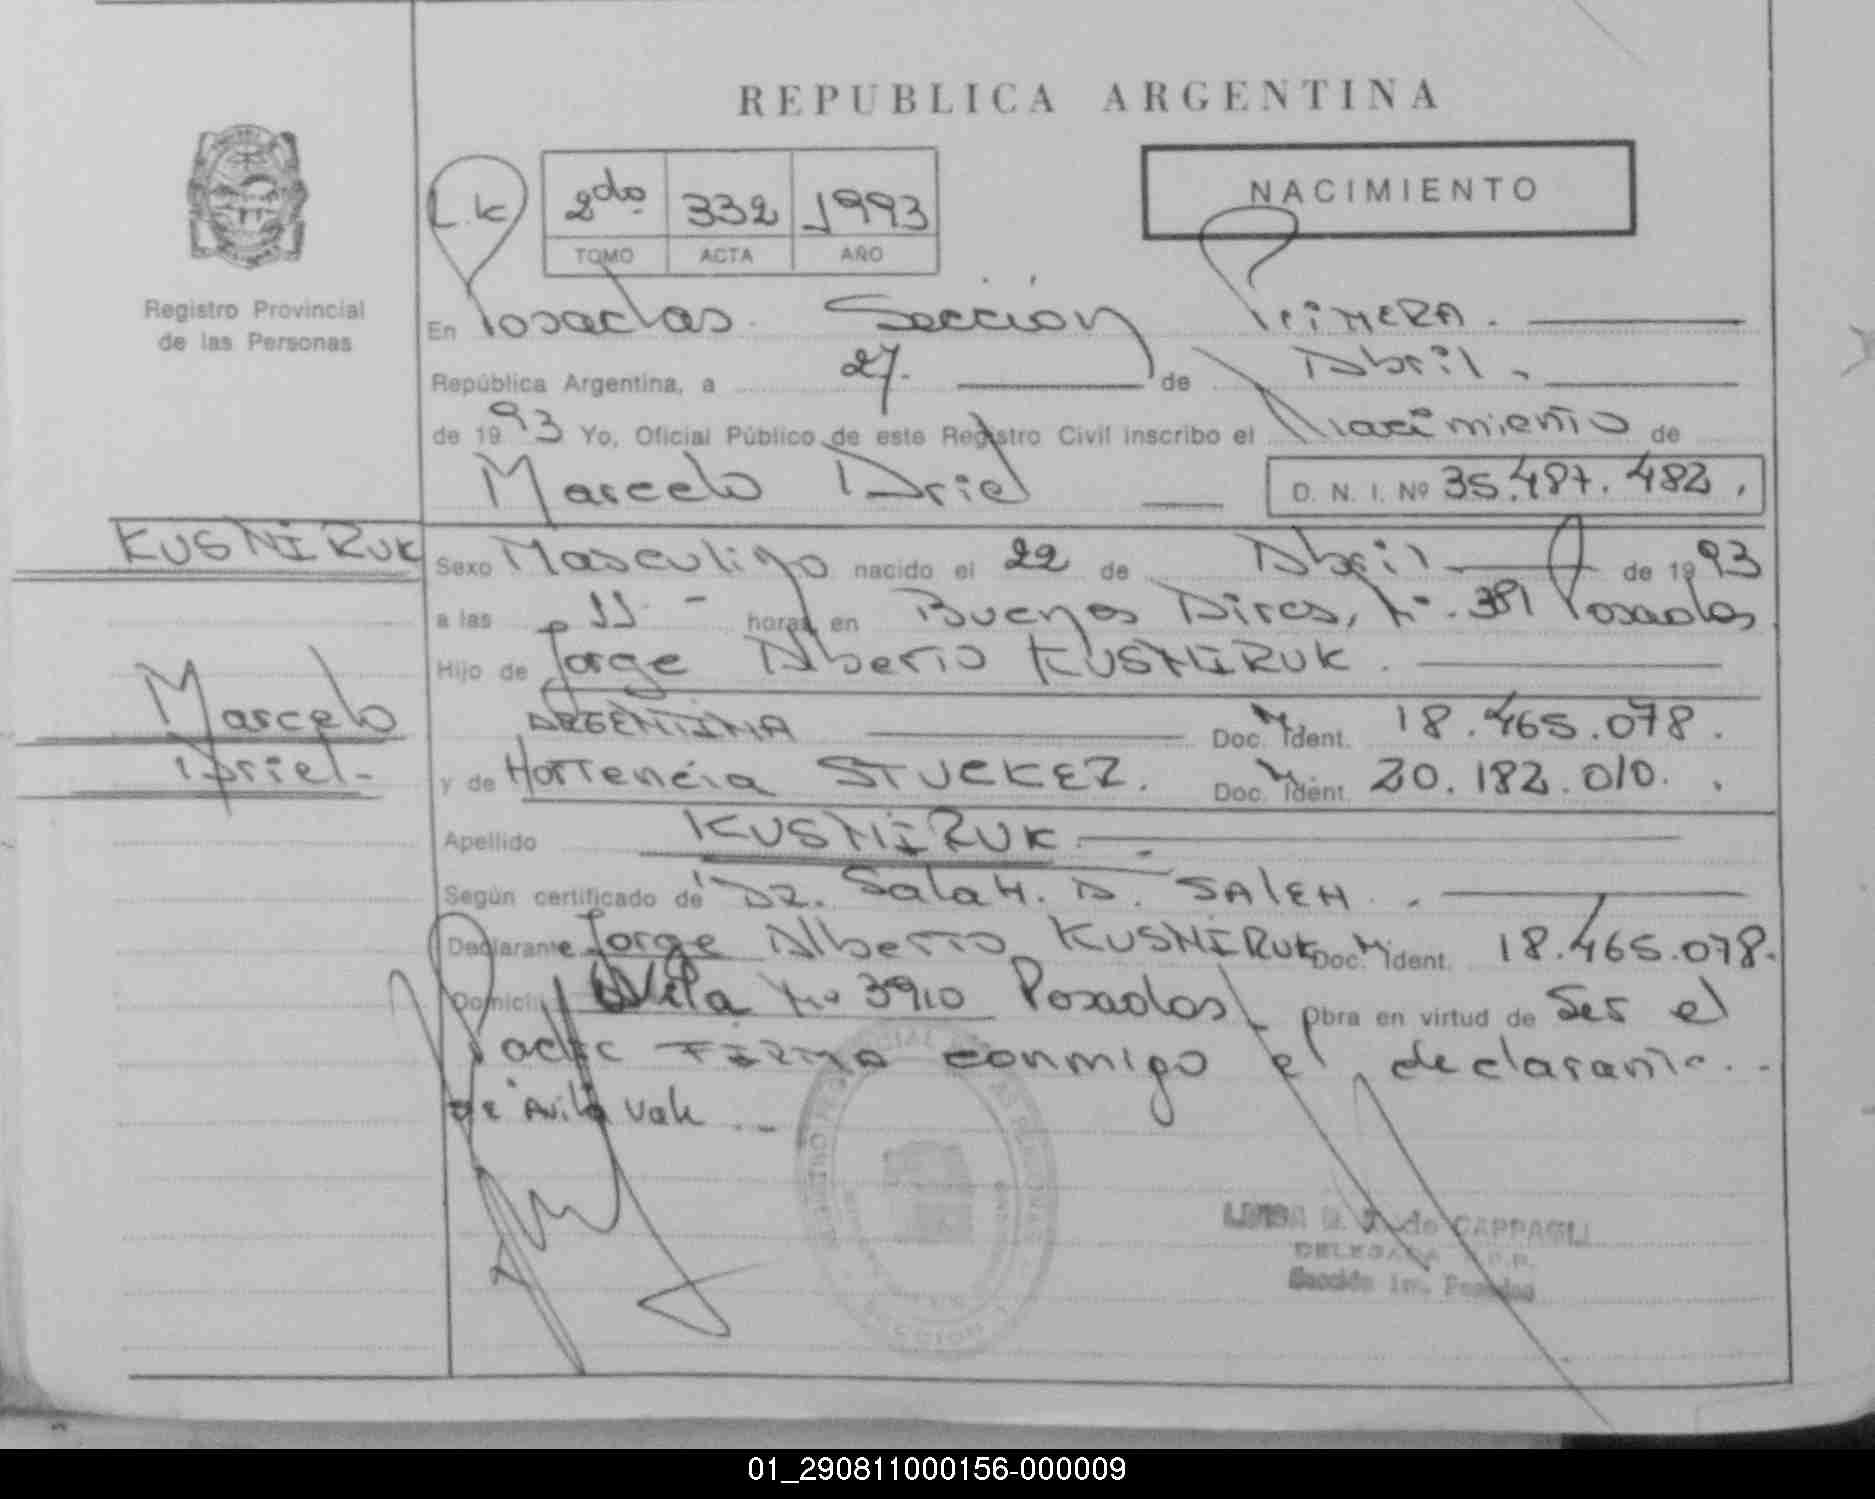 REPUBLICA ARGENTINA
NACIMIENTO
L.K
2do 332 1993
TOMO ACTA AÑO
Registro Provincial
de las Personas
En Posadas Sección PriMERA.
República Argentina, a 27. de Abril.
de 1993 Yo, Oficial Público de este Registro Civil inscribo el Nacimiento de
Marcelo Ariel D. N. I. Nº 35.487.482.
KUSNIRUK
Sexo Masculino nacido el 22 de Abril de 1993
a las 11 horas en Buenos Aires, Nº 391 Posadas
Hijo de Jorge Alberto KUSNIRUK.
ARGENTINA Doc. Ident. 18.465.078.
Marcelo
Ariel-
y de Hortencia STUCKER. Doc. Ident. 20.182.010.
Apellido KUSNIRUK
Según certificado de Dr. Salah. D. SALEH.
Declarante Jorge Alberto KUSNIRUK Doc. Ident. 18.465.078.
Domicilio Nº 3910 Posadas Obra en virtud de Ser el
Padre FIRMA conmigo el declarante..
de Avila Vale
DELEGADA R.P.P.
Sección 1ra. Posadas
01_290811000156-000009